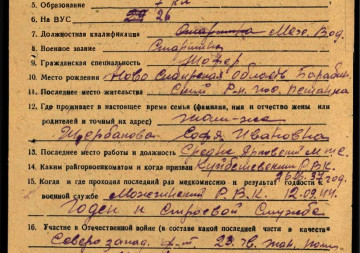 5. Образование 7 кл
6. На ВУС 26
7. Должностная квалификация Старшина Мех. Вод.
8. Военное звание Старшина
9. Гражданская специальность Шофер
10. Место рождения Ново Сибирская область Барабин
11. Последнее место жительства р-н
12. Где проживает в настоящее время семья (фамилия, имя и отчество жены или
родителей и точный их адрес) там-же
Щербакова Софя Ивановна
13. Последнее место работы и должность мтс.
14. Каким райгорвоенкоматом и когда призван Куйбышевским Р.В.К.
15. Когда и где проходил последний раз медкомиссию и результат годности к
военной службе Можгинский Р.В.К. 12.09.
Годен к строевой службе
16. Участие в Отечественной войне (в составе какой последней части и в качестве
Северо запад. ф-т 22. тан. полк